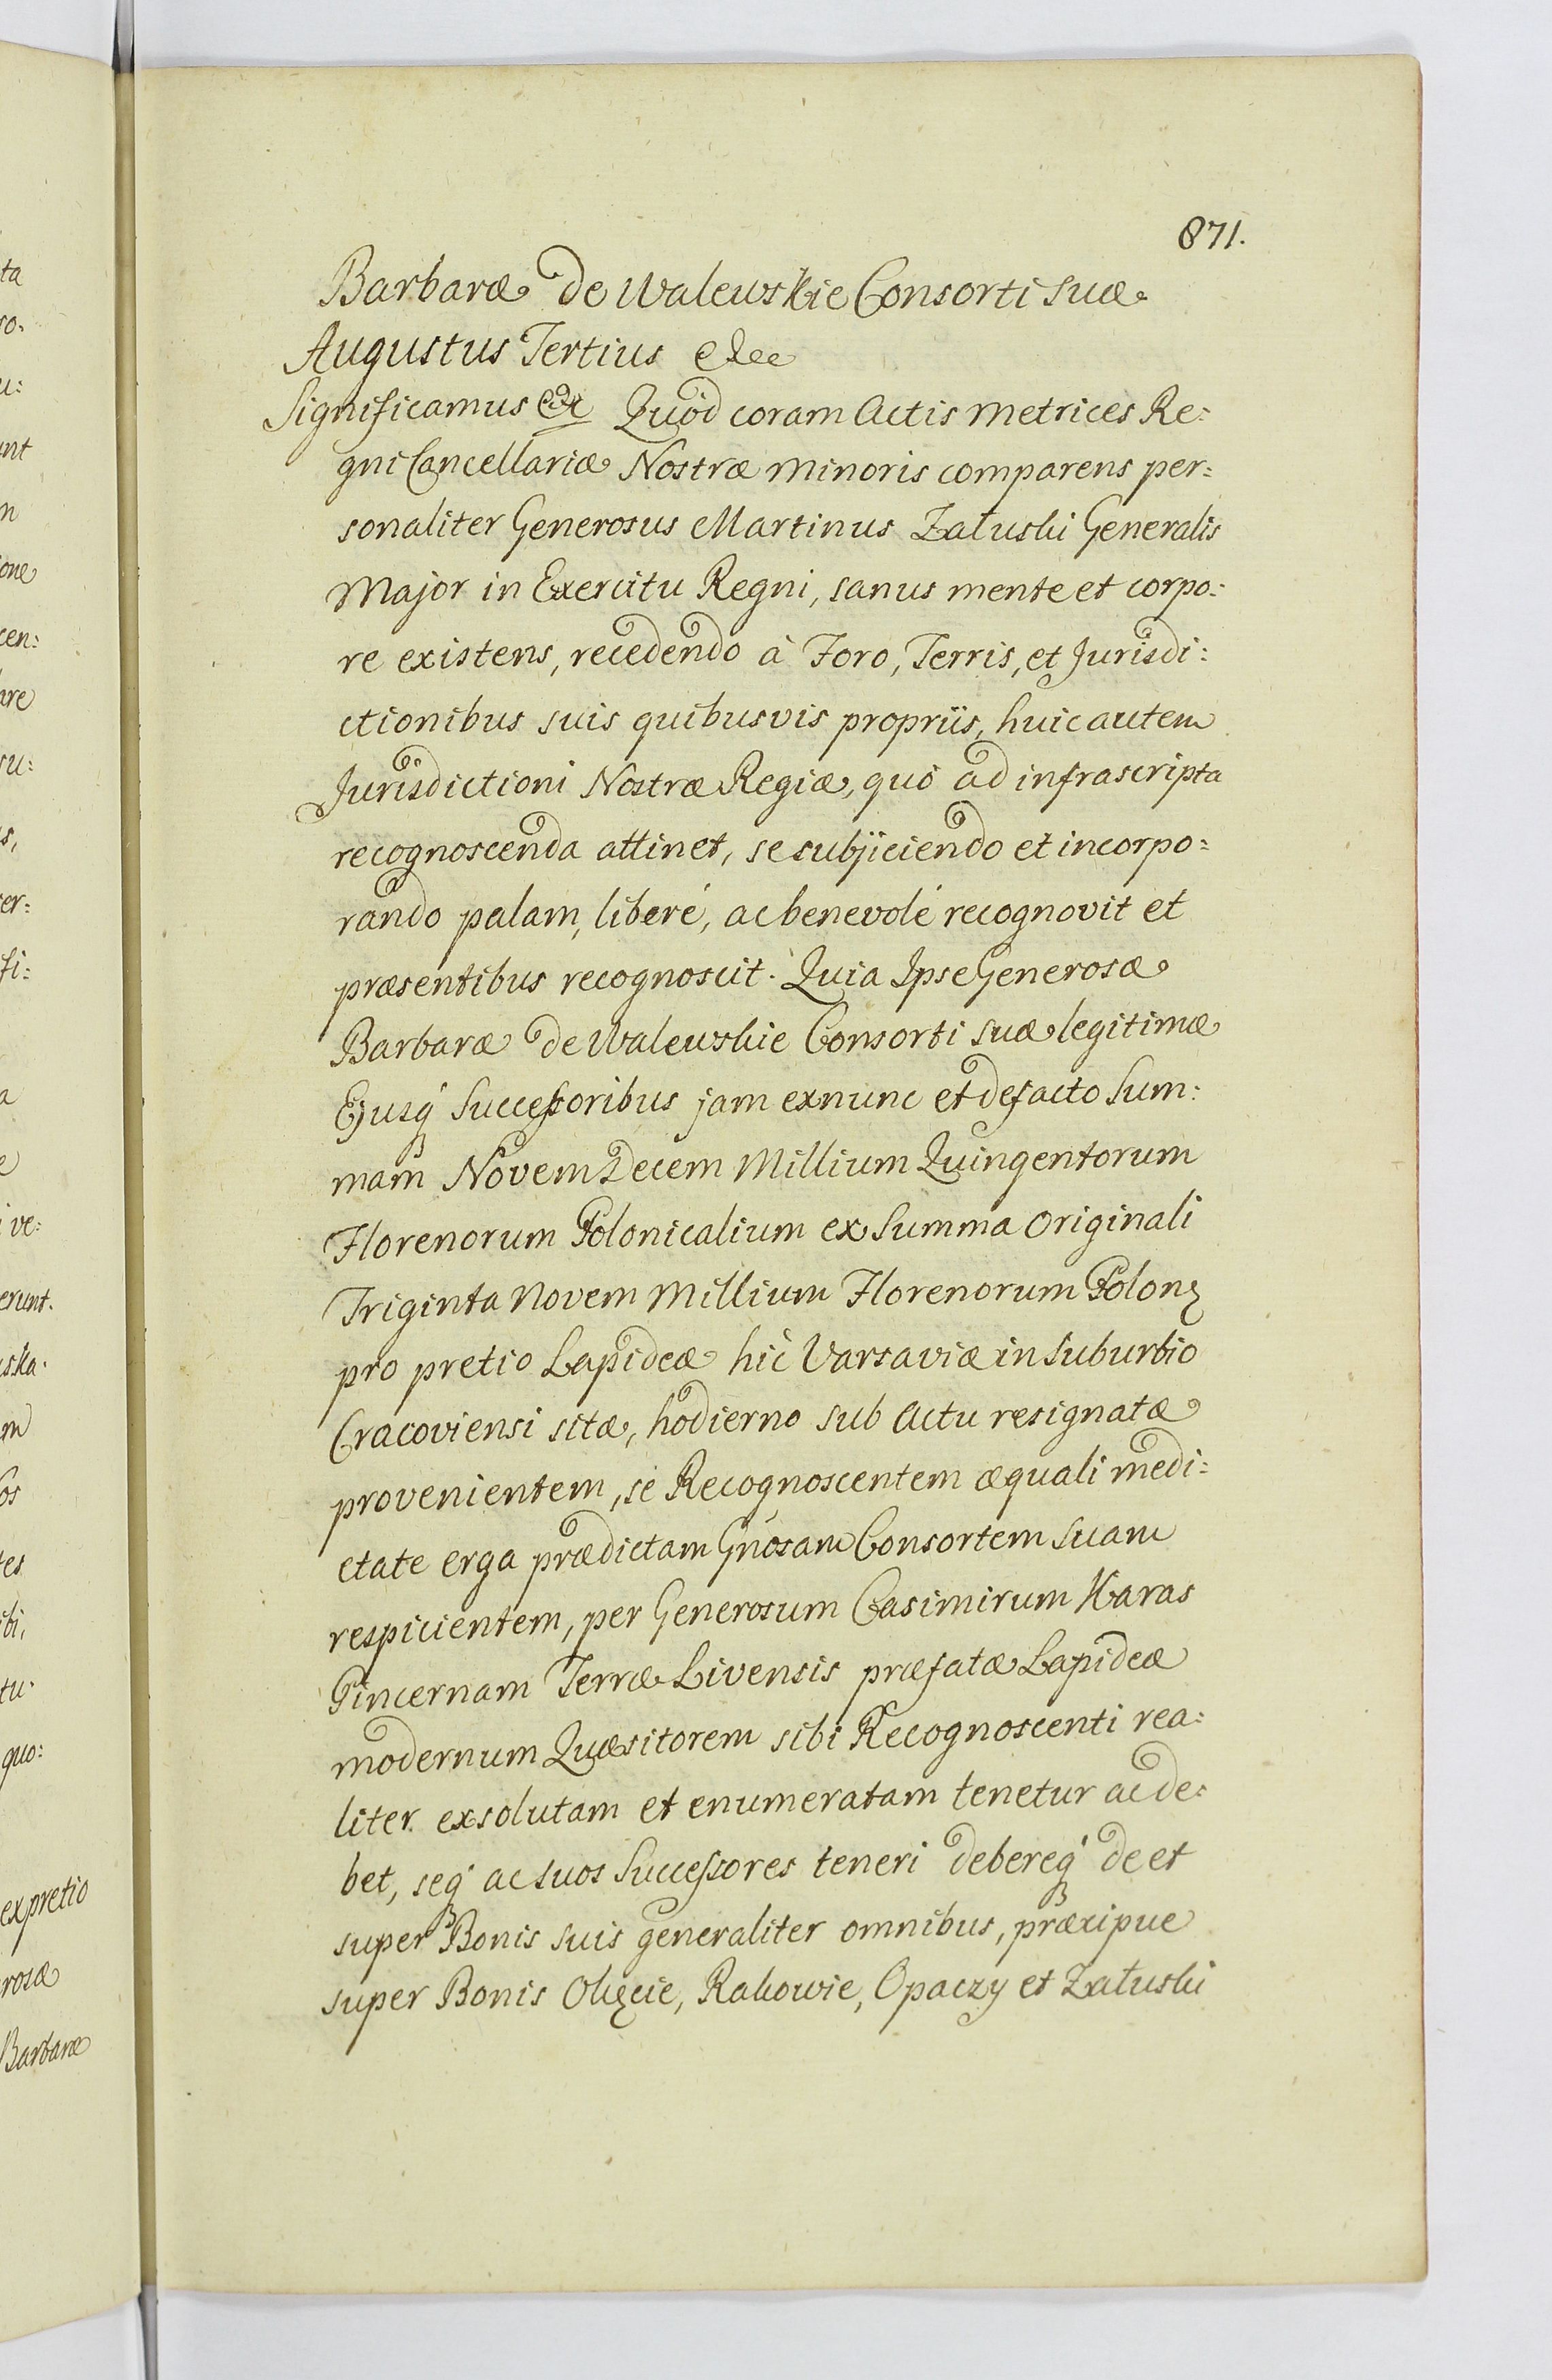 871.
Barbaræ de Walewskie Consorti suæ
Augustus Tertius &cc
Significamus &c Quod coram Actis Metrices Re:
gni Cancellariæ Nostræ Minoris comparens per:
sonaliter Generosus Martinus Załuski Generalis
Major in Exercitu Regni, sanus mente et corpo:
re existens, recedendo à Foro, Terris, et Jurisdi:
ctionibus suis quibusvis propriis, huic autem
Jurisdictioni Nostræ Regiæ, quò ad infrascripta
recognoscenda attinet, se subjiciendo et incorpo:
rando palam, liberé, ac benevolé recognovit et
præsentibus recognoscit. Quia Ipse Generosæ
Barbaræ de Walewskie Consorti suæ legitimæ
Ejusq́ Successoribus jam exnunc et defacto Sum:
mam Novem Decem Millium Quingentorum
Florenorum Polonicalium ex Summa Originali
Triginta Novem Millium Florenorum Polonꝫ
pro pretio Lapideæ hic Varsaviæ in Suburbio
Cracoviensi sitæ, hodierno sub Actu resignatæ
provenientem, se Recognoscentem æquali medi:
etate erga prædictam Gnosam Consortem Suam
respicientem, per Generosum Casimirum Karas
Pincernam Terræ Livensis præfatæ Lapideæ
modernum Quæsitorem sibi Recognoscenti rea:
liter exsolutam et enumeratam tenetur ac de:
bet, seq́ ac suos Successores teneri debereq́ de et
super Bonis suis generaliter omnibus, præcipue
super Bonis Okęcie, Rakowie, Opaczy et Załuski
ta
ro.
u:
unt
n
ione
cen:
are
su:
s,
er:
fi:
a
e
i ve:
erunt.
uska.
m
os
tes
ibi,
tu.
quo:
ex pretio
rosæ
Barbaræ